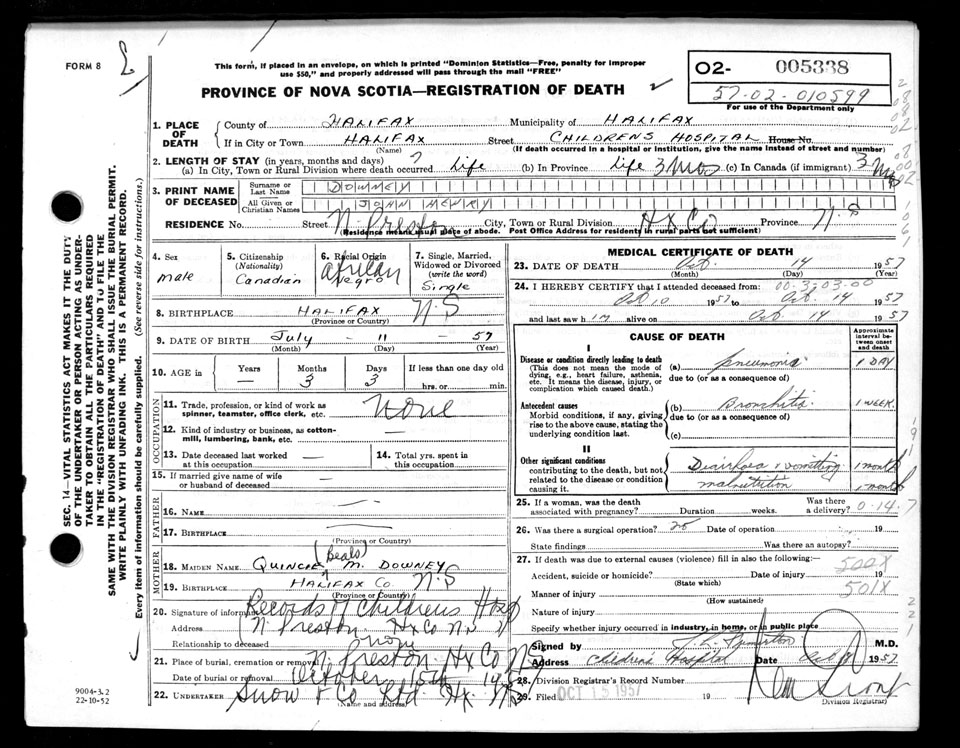 FORM 8
This form, if placed in an envelope, on which is printed "Dominion Statistics—Free, penalty for improper
use $50," and properly addressed will pass through the mail "FREE"
PROVINCE OF NOVA SCOTIA—REGISTRATION OF DEATH
02- 005338
57-02-010599
For use of the Department only
1. PLACE OF DEATH
County of HALIFAX Municipality of HALIFAX
If in City or Town HALIFAX Street CHILDRENS HOSPITAL House No.
(Name) (If death occurred in a hospital or institution, give the name instead of street and number)
2. LENGTH OF STAY (in years, months and days)
(a) In City, Town or Rural Division where death occurred life (b) In Province life 3 mos (c) In Canada (if immigrant) 3 mos
3. PRINT NAME OF DECEASED
Surname or Last Name DOWNEY
All Given or Christian Names JOHN HENRY
RESIDENCE No. Street N. Preston City, Town or Rural Division Hx Co Province N.S
(Residence means usual place of abode. Post Office Address for residents in rural parts not sufficient)
SEC. 14—VITAL STATISTICS ACT MAKES IT THE DUTY
OF THE UNDERTAKER OR PERSON ACTING AS UNDER-
TAKER TO OBTAIN ALL THE PARTICULARS REQUIRED
IN THE "REGISTRATION OF DEATH" AND TO FILE THE
SAME WITH THE DIVISION REGISTRAR WHO SHALL ISSUE THE BURIAL PERMIT.
WRITE PLAINLY WITH UNFADING INK. THIS IS A PERMANENT RECORD.
Every item of information should be carefully supplied. (See reverse side for instructions.)
4. Sex
male
5. Citizenship
(Nationality)
Canadian
6. Racial Origin
African
negro
7. Single, Married,
Widowed or Divorced
(write the word)
Single
8. BIRTHPLACE HALIFAX N.S
(Province or Country)
9. DATE OF BIRTH July 11 57
(Month) (Day) (Year)
10. AGE in
Years Months Days If less than one day old
— 3 3 hrs. or min.
OCCUPATION
11. Trade, profession, or kind of work as
spinner, teamster, office clerk, etc. None
12. Kind of industry or business, as cotton-
mill, lumbering, bank, etc. —
13. Date deceased last worked
at this occupation —
14. Total yrs. spent in
this occupation
15. If married give name of wife
or husband of deceased —
FATHER
16. Name —
17. Birthplace —
(Province or Country)
MOTHER
18. MAIDEN NAME QUINCIE (Beals) M. DOWNEY
19. BIRTHPLACE HALIFAX Co. N.S
(Province or Country)
20. Signature of informant Records of Childrens Hosp
Address N. Preston Hx Co N.S
Relationship to deceased none
21. Place of burial, cremation or removal N. Preston Hx Co NS
Date of burial or removal October 15th 1957
22. UNDERTAKER Snow & Co Ltd Hx. N.S
(Name and address)
9004-3.2
22-10-52
MEDICAL CERTIFICATE OF DEATH
23. DATE OF DEATH Oct. 14 1957
(Month) (Day) (Year)
24. I HEREBY CERTIFY that I attended deceased from: 00-3-03-00
Oct 10 1957 to Oct. 14 1957
and last saw him alive on Oct 14 1957
CAUSE OF DEATH
Approximate
interval be-
tween onset
and death
I
Disease or condition directly leading to death
(This does not mean the mode of
dying, e.g., heart failure, asthenia,
etc. It means the disease, injury, or
complication which caused death.)
(a) pneumonia 1 DAY
due to (or as a consequence of)
Antecedent causes
Morbid conditions, if any, giving
rise to the above cause, stating the
underlying condition last.
(b) Bronchitis 1 WEEK
due to (or as a consequence of)
(c)
II
Other significant conditions
contributing to the death, but not
related to the disease or condition
causing it.
Diarrhoea & vomiting 1 month
malnutrition 1 month
25. If a woman, was the death
associated with pregnancy? Duration weeks. Was there a delivery? 0-14-7
26. Was there a surgical operation? Date of operation 19
State findings Was there an autopsy?
27. If death was due to external causes (violence) fill in also the following:—
Accident, suicide or homicide? Date of injury 19
(State which)
500X
Manner of injury 501X
(How sustained)
Nature of injury
Specify whether injury occurred in industry, in home, or in public place
Signed by M.D.
Address Children's Hospital Date Oct 1957
28. Division Registrar's Record Number
29. Filed OCT 15 1957 19
Division Registrar